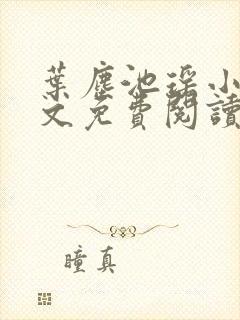 葉塵池瑶小
文免費閱讀
瞳真